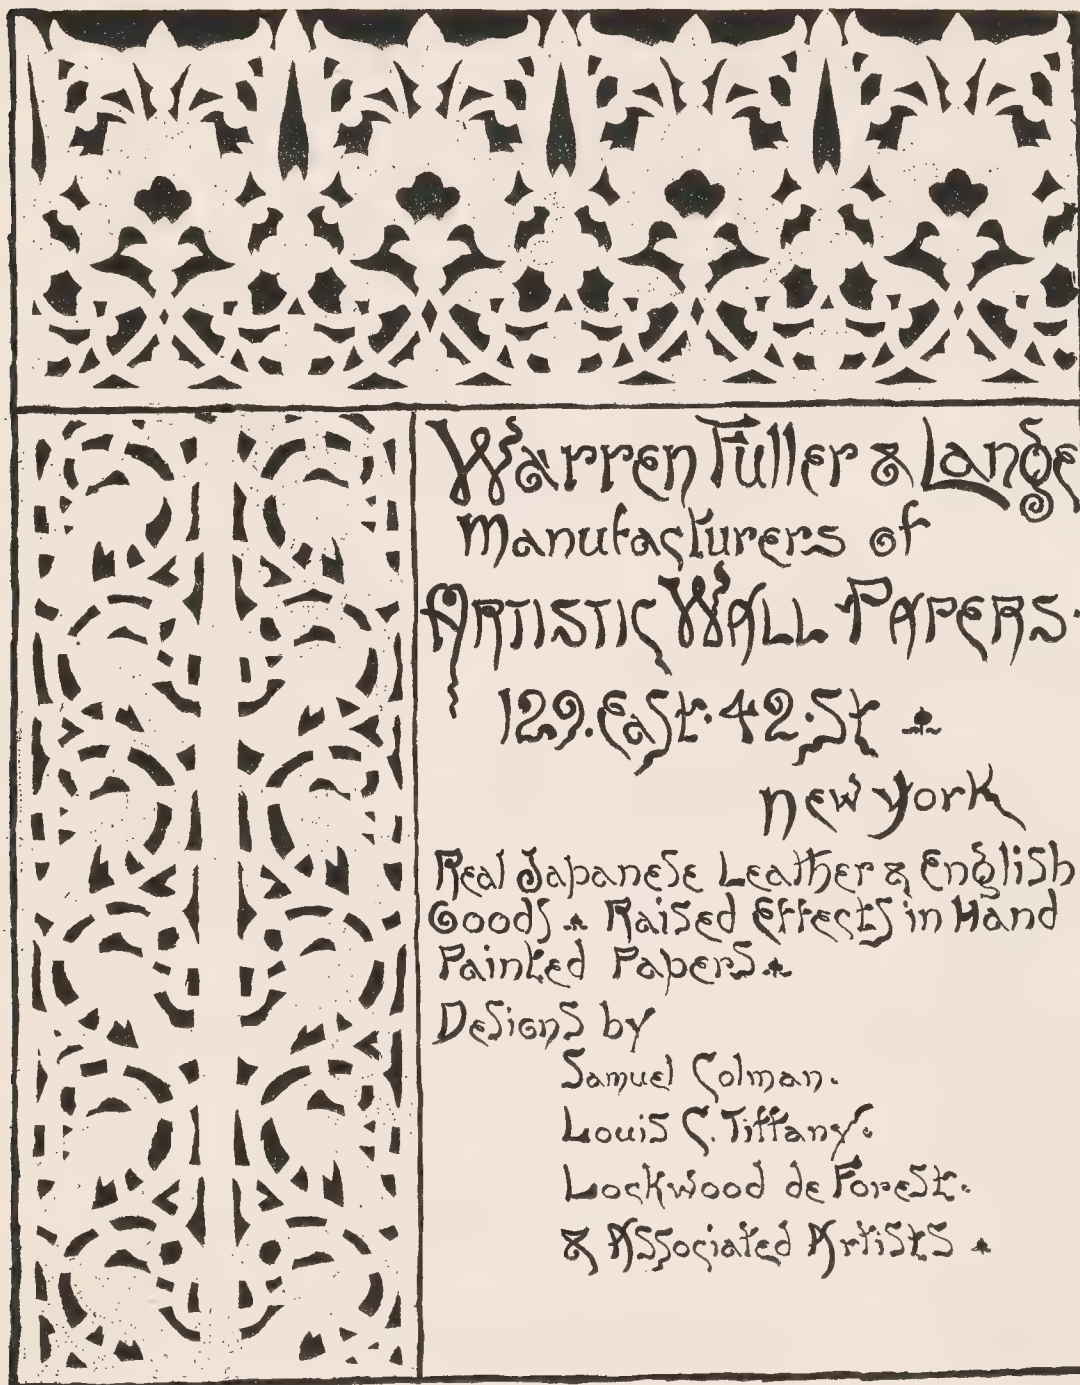 Warren Fuller & Lange
Manufacturers of
ARTISTIC WALL PAPERS.
129. East. 42. St
New York
Real Japanese Leather & English
Goods Raised Effects in Hand
Painted Papers.
Designs by
Samuel Colman.
Louis C. Tiffany.
Lockwood de Forest.
& Associated Artists